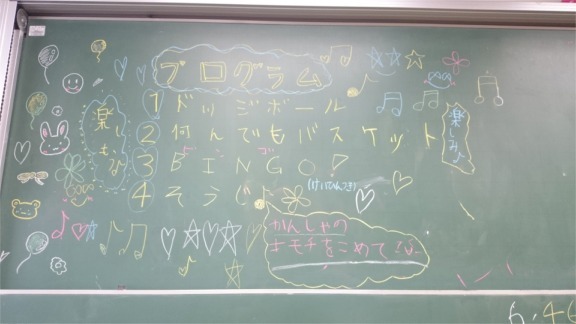 プログラム
① ドッジボール
② 何んでもバスケット
③ BINGO!
④ そうじ
楽しみ♪
かんしゃの
キモチをこめて